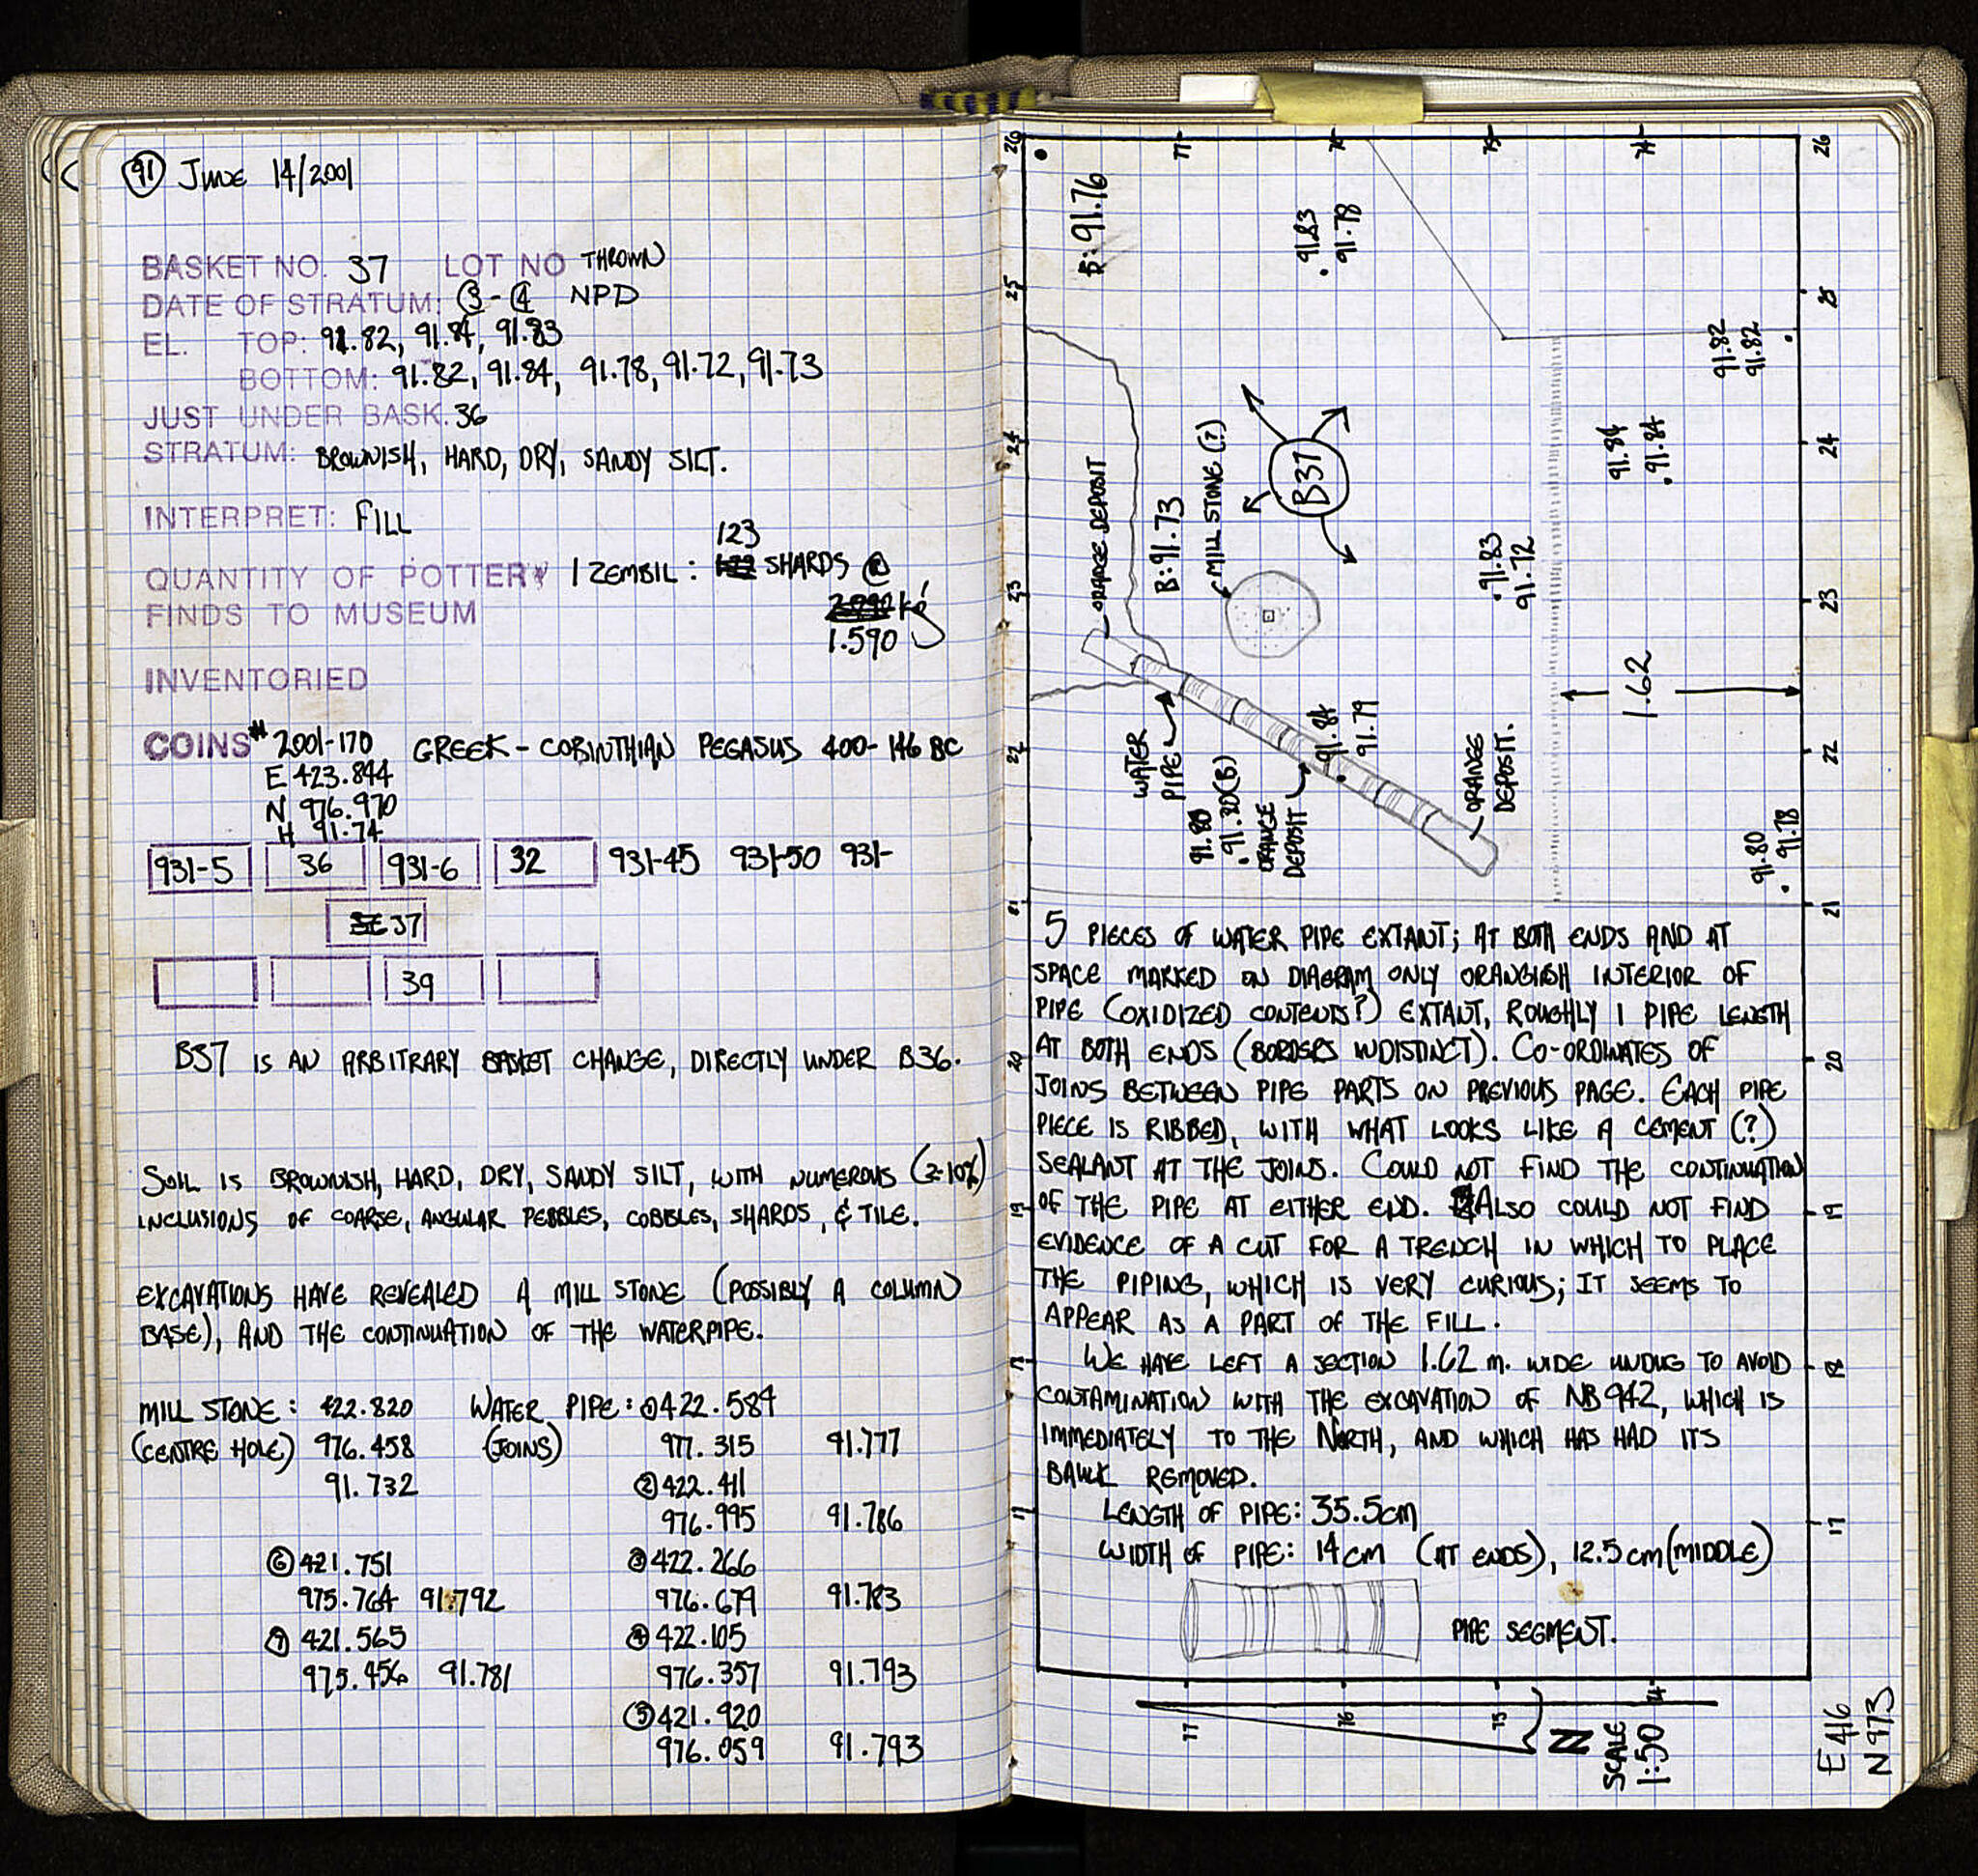 91 JUNE 14/2001
BASKET NO. 37 LOT NO THROWN
DATE OF STRATUM: 3-4 NPD
EL. TOP: 91.82, 91.84, 91.83
BOTTOM: 91.82, 91.84, 91.78, 91.72, 91.73
JUST UNDER BASK. 36
STRATUM: BROWNISH, HARD, DRY, SANDY SILT.
INTERPRET: FILL
123
QUANTITY OF POTTERY 1 ZEMBIL: SHARDS @
FINDS TO MUSEUM kg
1.590
INVENTORIED
COINS # 2001-170 GREEK - CORINTHIAN PEGASUS 400-146 BC
E 423.844
N 976.970
H 91.74
931-5 36 931-6 32 931-45 931-50 931-
37
39
B37 IS AN ARBITRARY BASKET CHANGE, DIRECTLY UNDER B36.
SOIL IS BROWNISH, HARD, DRY, SANDY SILT, WITH NUMEROUS (2-10%)
INCLUSIONS OF COARSE, ANGULAR PEBBLES, COBBLES, SHARDS, & TILE.
EXCAVATIONS HAVE REVEALED A MILL STONE (POSSIBLY A COLUMN
BASE), AND THE CONTINUATION OF THE WATERPIPE.
MILL STONE: 422.820 WATER PIPE: ① 422.584
(CENTRE HOLE) 976.458 (JOINS) 977.315 91.777
91.732 ② 422.411
976.995 91.786
⑥ 421.751 ③ 422.266
975.764 91.792 976.679 91.783
⑦ 421.565 ④ 422.105
975.456 91.781 976.357 91.793
⑤ 421.920
976.059 91.793
26 77 76 75 74 26
B: 91.76
91.83
91.78
25 25
91.82
91.82
24 24
91.84
91.84
ORANGE DEPOSIT
B: 91.73
MILL STONE (?)
B37
91.83
91.72
23 23
1.62
WATER
PIPE
91.84
91.79
22 22
91.80
91.80(B)
ORANGE
DEPOSIT
ORANGE
DEPOSIT.
91.80
91.78
21 21
5 PIECES OF WATER PIPE EXTANT; AT BOTH ENDS AND AT
SPACE MARKED ON DIAGRAM ONLY ORANGISH INTERIOR OF
PIPE (OXIDIZED CONTENTS?) EXTANT, ROUGHLY 1 PIPE LENGTH
AT BOTH ENDS (BORDERS INDISTINCT). CO-ORDINATES OF
20 20
JOINS BETWEEN PIPE PARTS ON PREVIOUS PAGE. EACH PIPE
PIECE IS RIBBED, WITH WHAT LOOKS LIKE A CEMENT (?)
SEALANT AT THE JOINS. COULD NOT FIND THE CONTINUATION
OF THE PIPE AT EITHER END. ALSO COULD NOT FIND
19 19
EVIDENCE OF A CUT FOR A TRENCH IN WHICH TO PLACE
THE PIPING, WHICH IS VERY CURIOUS; IT SEEMS TO
APPEAR AS A PART OF THE FILL.
WE HAVE LEFT A SECTION 1.62 m. WIDE UNDUG TO AVOID
CONTAMINATION WITH THE EXCAVATION OF NB 942, WHICH IS
IMMEDIATELY TO THE NORTH, AND WHICH HAS HAD ITS
BAULK REMOVED.
LENGTH OF PIPE: 35.5cm
17 17
WIDTH OF PIPE: 14 cm (AT ENDS), 12.5 cm (MIDDLE)
PIPE SEGMENT.
77 76 75 74
N
SCALE
1:50
E 416
N 973